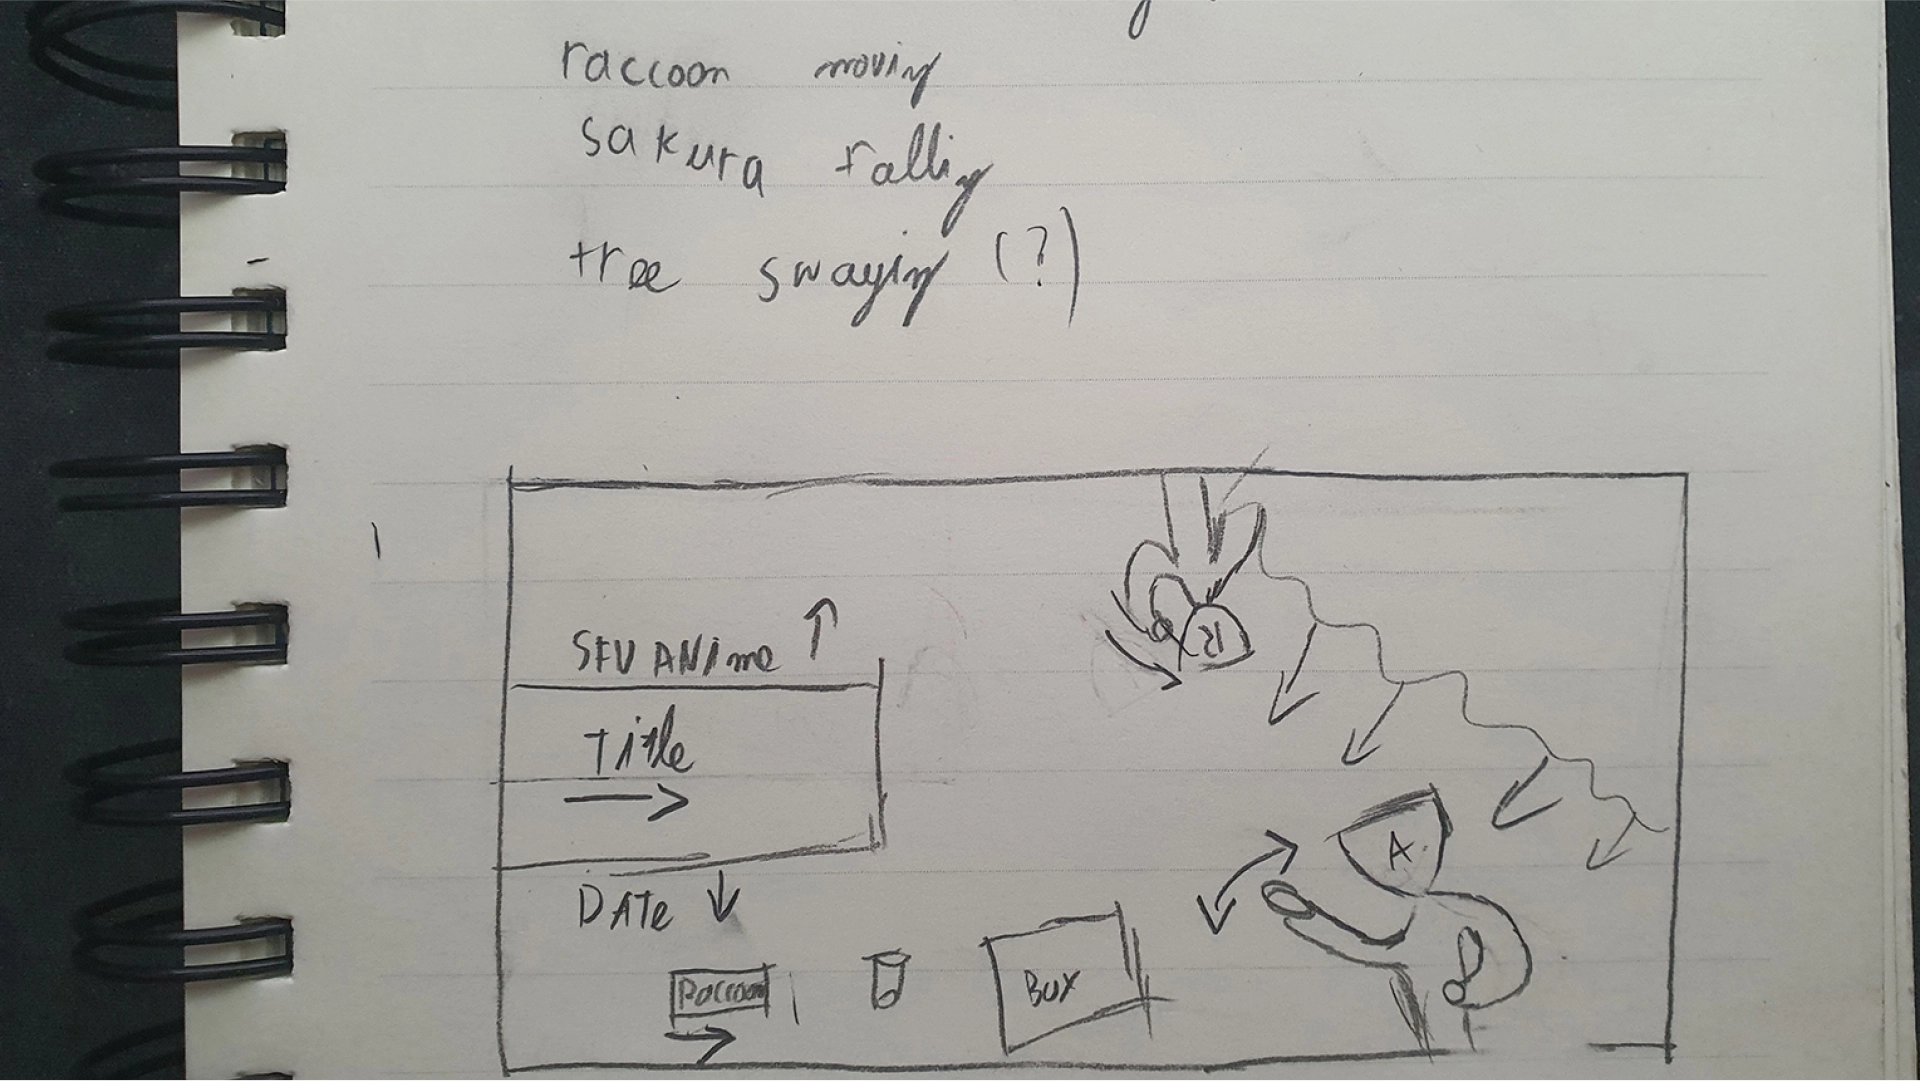 raccoon moving
sakura falling
tree swaying (?)
1
R
SFU ANIme ↑
Title
→
A
DATe ↓
Raccoon
Box